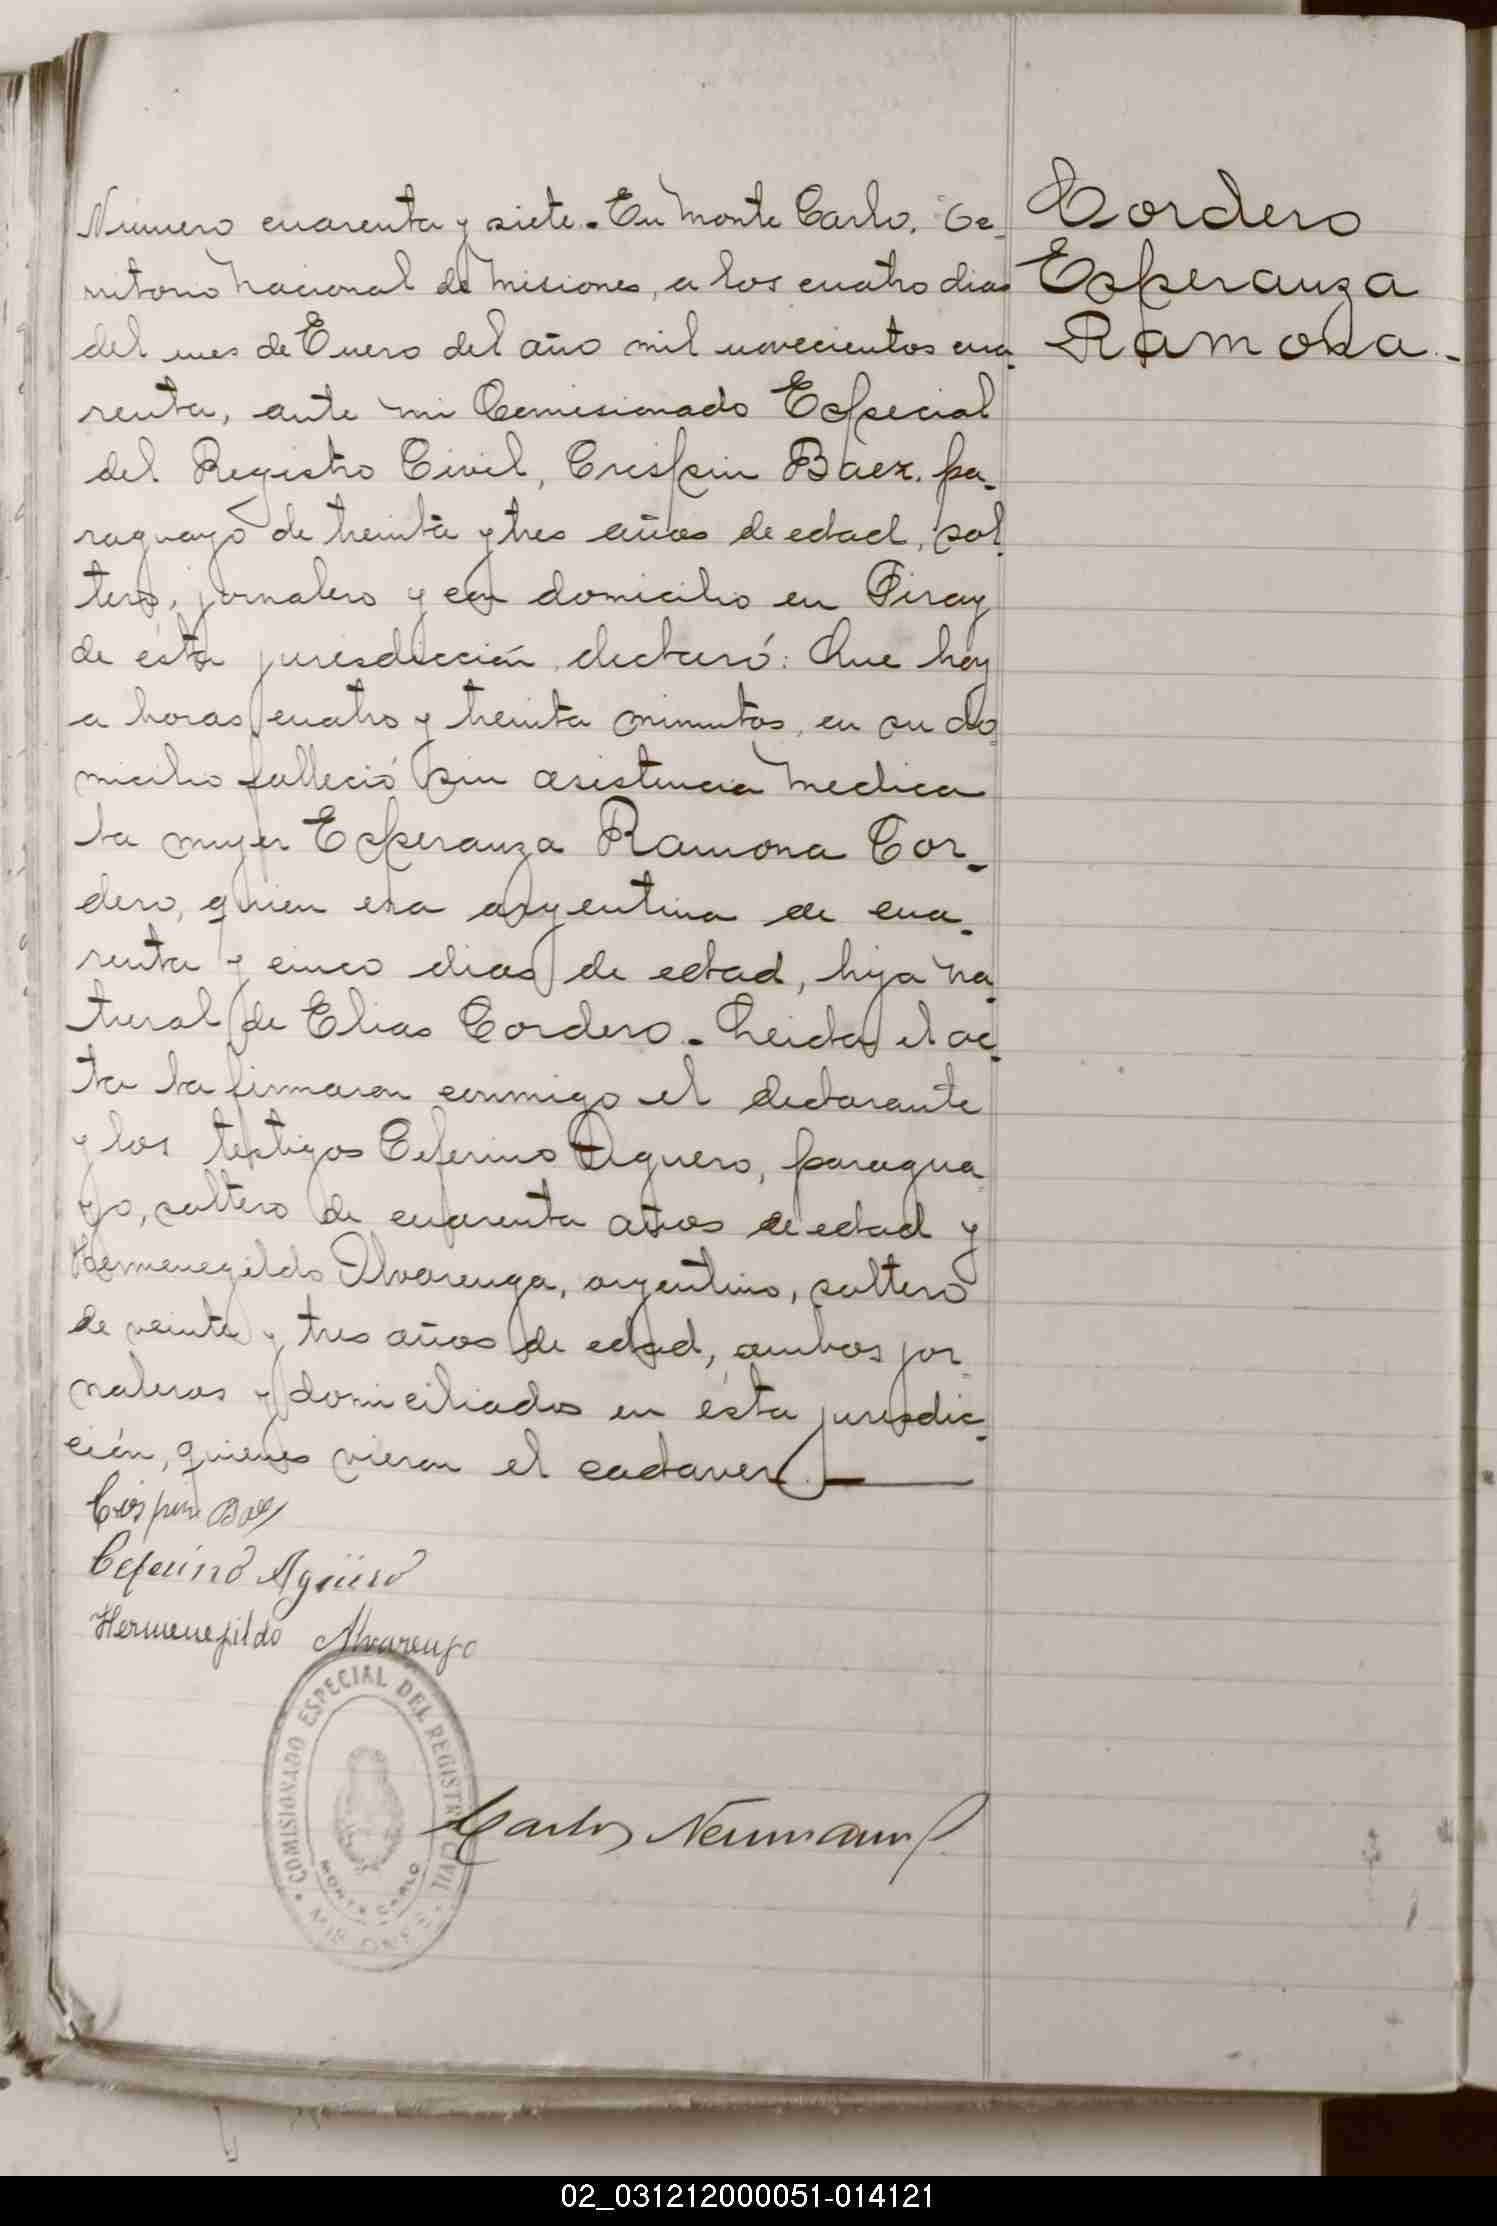 Número cuarenta y siete. En Monte Carlo, Te-
rritorio Nacional de Misiones, a los cuatro dias
del mes de Enero del año mil novecientos cua-
renta, ante mi Comisionado Especial
del Registro Civil, Crispin Baez, pa-
raguayo de treinta y tres años de edad, sol-
tero, jornalero y con domicilio en Piray
de ésta jurisdicción, declaró: Que hoy
a horas cuatro y treinta minutos, en su do-
micilio falleció sin asistencia medica
la mujer Esperanza Ramona Cor-
dero, quien era argentina de cua-
renta y cinco dias de edad, hija na-
tural de Elias Cordero. Leida el ac-
ta la firmaron conmigo el declarante
y los testigos Ceferino Aguero, paragua-
yo, soltero de cuarenta años de edad y
Hermenegildo Alvarenga, argentino, soltero
de veinte y tres años de edad, ambos jor-
naleros y domiciliados en ésta jurisdic-
ción, quienes vieron el cadaver.
Cordero
Esperanza
Ramona.-
Crispin Baez
Ceferino Agüero
Hermenegildo Alvarenga
COMISIONADO ESPECIAL DEL REGISTRO CIVIL
MONTE CARLO
MISIONES
Carlos Neumann
02_031212000051-014121